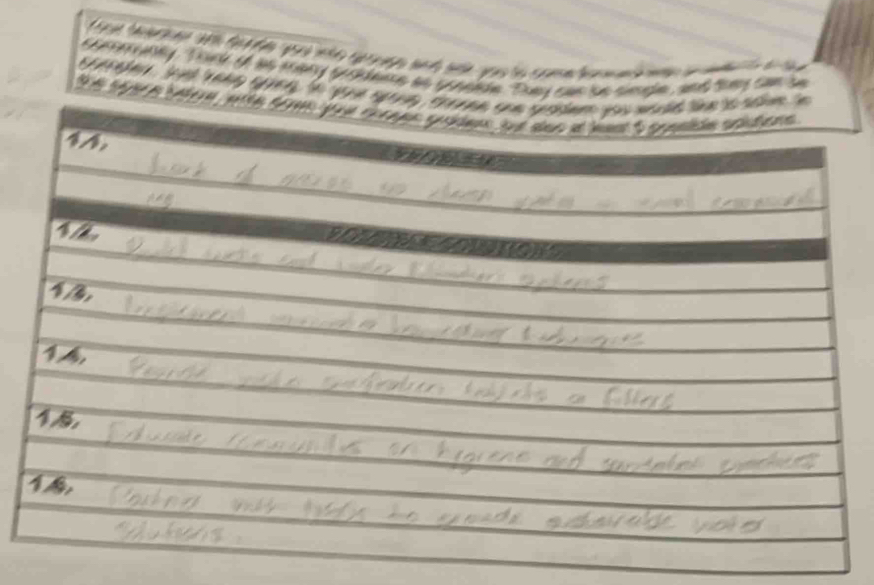 Your teacher will divide you into groups and ask you to
community. Think of as many problems as possible. They can be simple, and they can be
complex, just keep going. In your group, choose one problem you would like to solve. In
the space below, write down your chosen problem, and also at least 5 possible solutions.
1.1.
PROBLEM
Lack of access to clean water in rural
1.2.
POSSIBLE SOLUTIONS
Build wells and water filtration systems
1.3.
Implement rainwater harvesting techniques
1.4.
Provide water purification tablets or filters
1.5.
Educate communities on hygiene and sanitation practices
1.6.
Partner with NGOs to provide water
solutions.